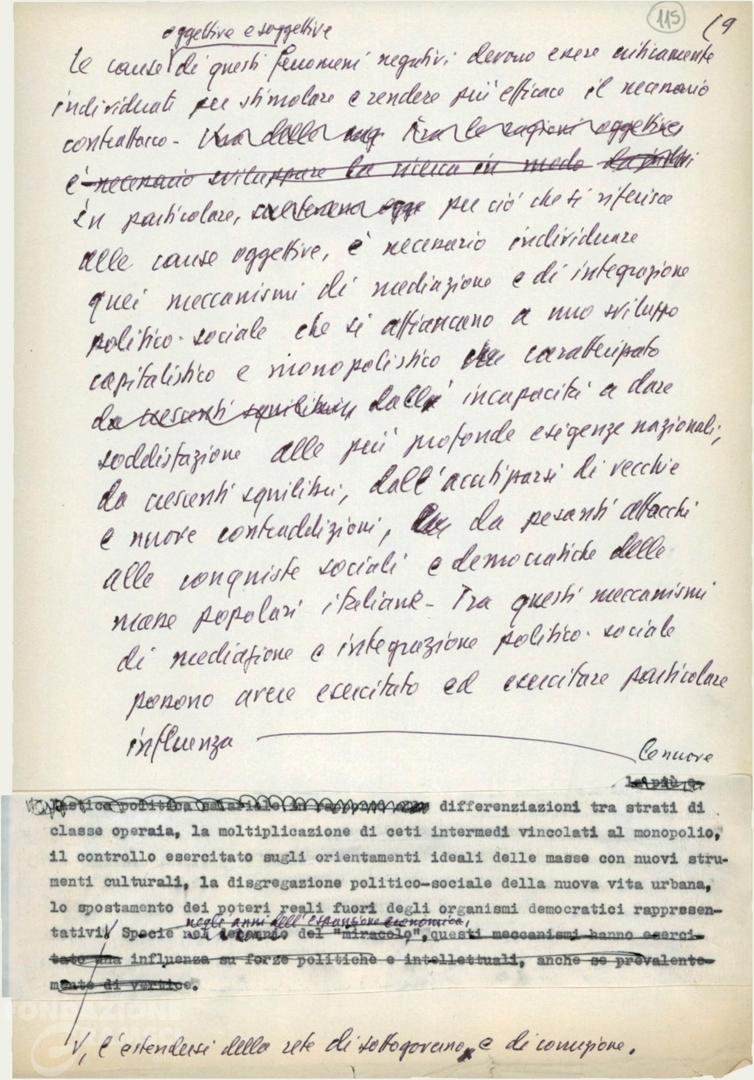 115
19
oggettive e soggettive
Le cause di questi fenomeni negativi devono essere criticamente
individuati per stimolare e rendere più efficace il necessario
contrattacco - Una delle Tra le ragioni oggettive
è necessario sviluppare la ricerca in modo
In particolare, per ciò che si riferisce
alle cause oggettive, è necessario individuare
quei meccanismi di mediazione e di integrazione
politico-sociale che si affiancano a uno sviluppo
capitalistico e monopolistico caratterizzato
da crescenti squilibri, dall'incapacità a dare
soddisfazione alle più profonde esigenze nazionali,
da crescenti squilibri, dall'acutizzarsi di vecchie
e nuove contraddizioni, da pesanti attacchi
alle conquiste sociali e democratiche delle
masse popolari italiane - Tra questi meccanismi
di mediazione e integrazione politico-sociale
possono avere esercitato ed esercitare particolare
influenza
le nuove
le più
politica salariale in differenziazioni tra strati di
classe operaia, la moltiplicazione di ceti intermedi vincolati al monopolio,
il controllo esercitato sugli orientamenti ideali delle masse con nuovi stru-
menti culturali, la disgregazione politico-sociale della nuova vita urbana,
lo spostamento dei poteri reali fuori degli organismi democratici rappresen-
negli anni dell'espansione economica,
tativi. Specie nel del "miracolo", questi meccanismi hanno eserci-
tato una influenza su forze politiche e intellettuali, anche se prevalente-
mente di vertice.
V, l'estendersi della rete di sottogoverno e di corruzione.
FONDAZIONE